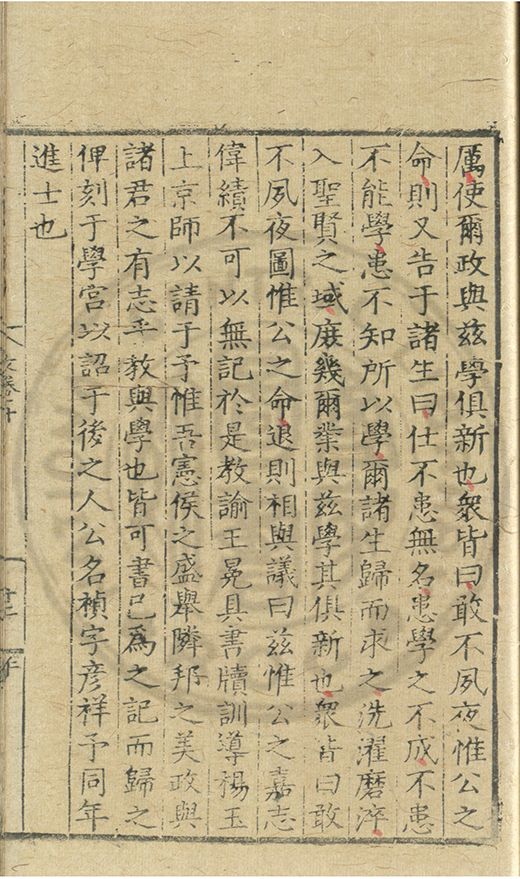 厲使爾政與兹學俱新也衆皆曰敢不夙夜惟公之
命則又告于諸生曰仕不患無名患學之不成不患
不能學患不知所以學爾諸生歸而求之洗濯磨淬
入聖賢之域庶幾爾業與兹學其俱新也衆皆曰敢
不夙夜圖惟公之命退則相與議曰兹惟公之嘉志
偉績不可以無記於是教諭王冕具書牘訓導楊玉
上京師以請于予惟吾憲侯之盛舉隣邦之美政與
諸君之有志乎教與學也皆可書已爲之記而歸之
俾刻于學宫以詔于後之人公名禎字彦祥予同年
進士也